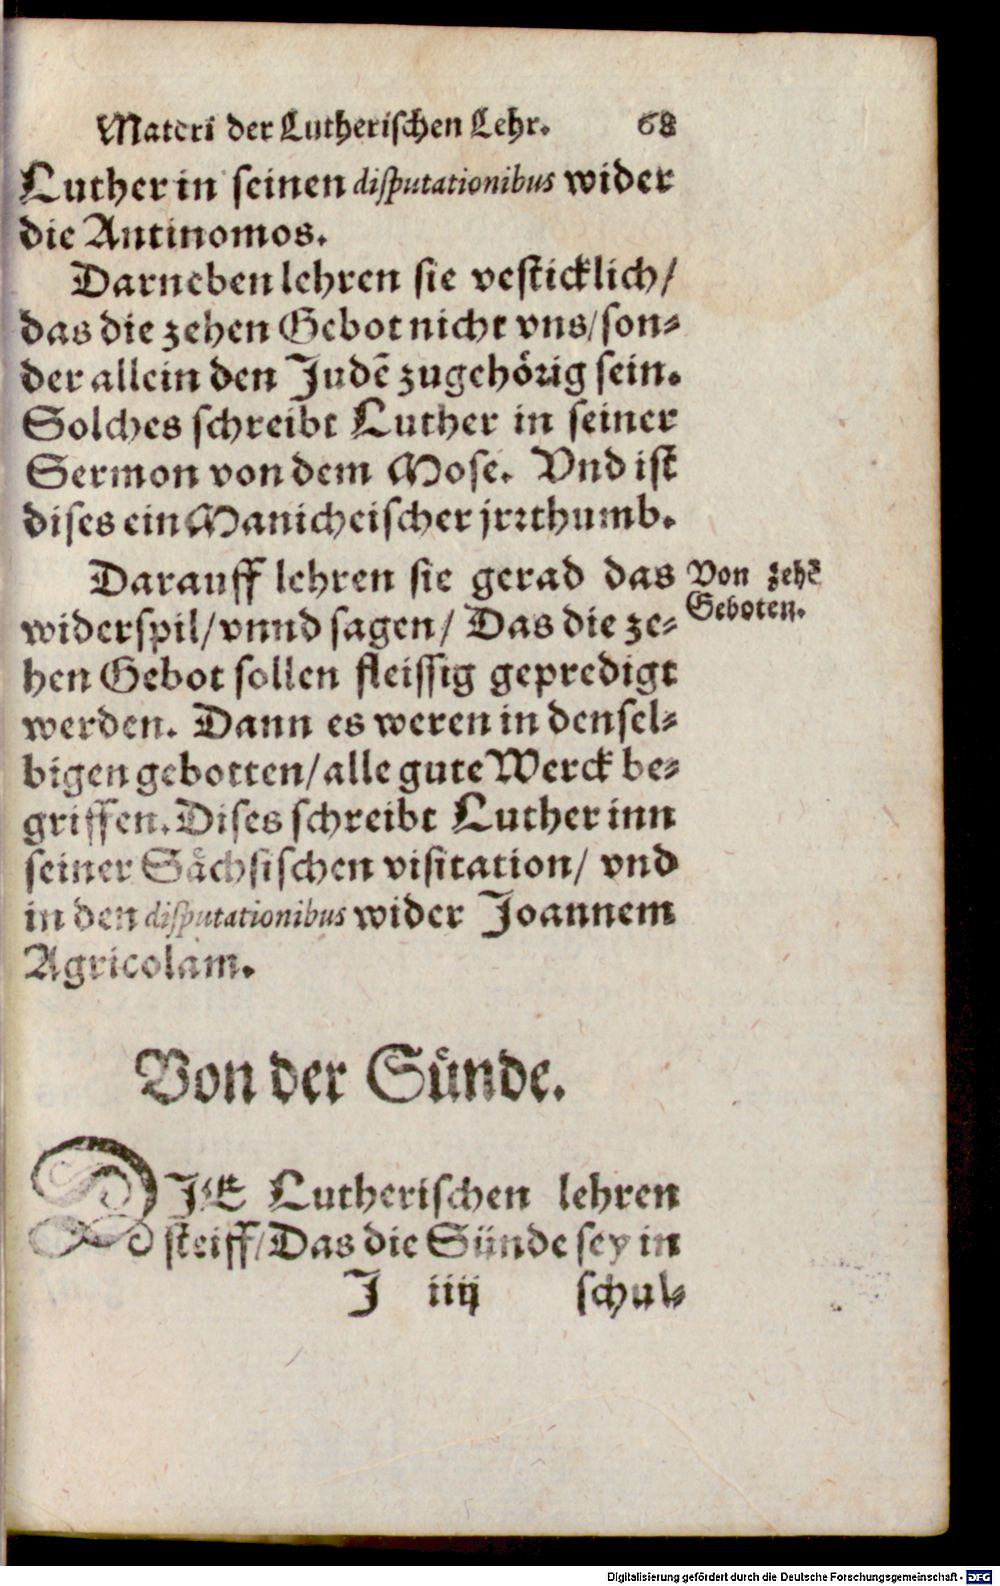 Materi der Lutherischen Lehr. 68
Luther in seinen disputationibus wider
die Antinomos.
Darneben lehren sie vesticklich/
das die zehen Gebot nicht vns/ son-
der allein den Judē zugehörig sein.
Solches schreibt Luther in seiner
Sermon von dem Mose. Vnd ist
dises ein Manicheischer jrrthumb.
Darauff lehren sie gerad das
widerspil/ vnnd sagen/ Das die ze-
hen Gebot sollen fleissig gepredigt
werden. Dann es weren in densel-
bigen gebotten/ alle gute Werck be-
griffen. Dises schreibt Luther inn
seiner Sächsischen visitation/ vnd
in den disputationibus wider Joannem
Agricolam.
Von zehē
Geboten.
Von der Sünde.
DIE Lutherischen lehren
steiff/ Das die Sünde sey in
J iiij schul-
Digitalisierung gefördert durch die Deutsche Forschungsgemeinschaft - DFG